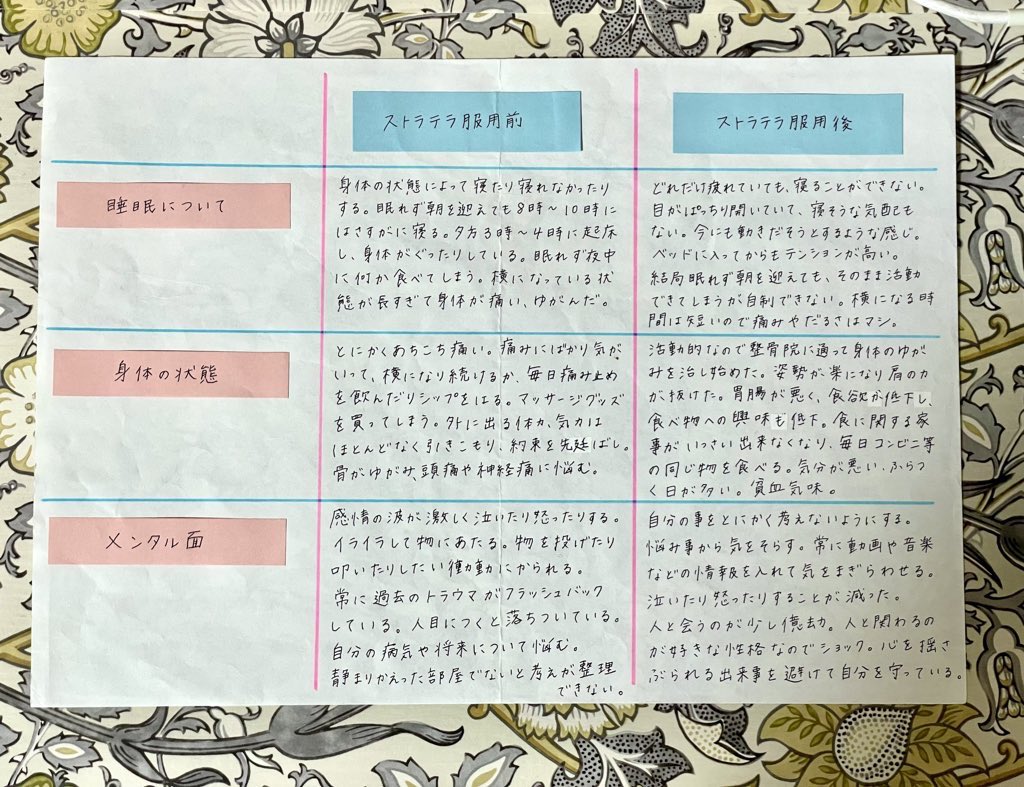 ストラテラ服用前
ストラテラ服用後
睡眠について
身体の状態によって寝たり寝れなかったり
する。眠れず朝を迎えても8時〜10時に
はさすがに寝る。夕方3時〜4時に起床
し、身体がぐったりしている。眠れず夜中
に何か食べてしまう。横になっている状
態が長すぎて身体が痛い、ゆがんだ。
どれだけ疲れていても、寝ることができない。
目がぱっちり開いていて、寝そうな気配も
ない。今にも動きだそうとするような感じ。
ベッドに入ってからもテンションが高い。
結局眠れず朝を迎えても、そのまま活動
できてしまうが自制できない。横になる時
間は短いので痛みやだるさはマシ。
身体の状態
とにかくあちこち痛い。痛みにばかり気が
いって、横になり続けるか、毎日痛み止め
を飲んだりシップをはる。マッサージグッズ
を買ってしまう。外に出る体力、気力は
ほとんどなく引きこもり、約束を先延ばし。
骨がゆがみ、頭痛や神経痛に悩む。
活動的なので整骨院に通って身体のゆが
みを治し始めた。姿勢が楽になり肩の力
が抜けた。胃腸が悪く、食欲が低下し、
食べ物への興味も低下。食に関する家
事がいっさい出来なくなり、毎日コンビニ等
の同じ物を食べる。気分が悪い、ふらつ
く日が多い。貧血気味。
メンタル面
感情の波が激しく泣いたり怒ったりする。
イライラして物にあたる。物を投げたり
叩いたりしたい衝動にかられる。
常に過去のトラウマがフラッシュバック
している。人目につくと落ちついている。
自分の病気や将来について悩む。
静まりかえった部屋でないと考えが整理
できない。
自分の事をとにかく考えないようにする。
悩み事から気をそらす。常に動画や音楽
などの情報を入れて気をまぎらわせる。
泣いたり怒ったりすることが減った。
人と会うのが少し億劫。人と関わるの
が好きな性格なのでショック。心を揺さ
ぶられる出来事を避けて自分を守っている。